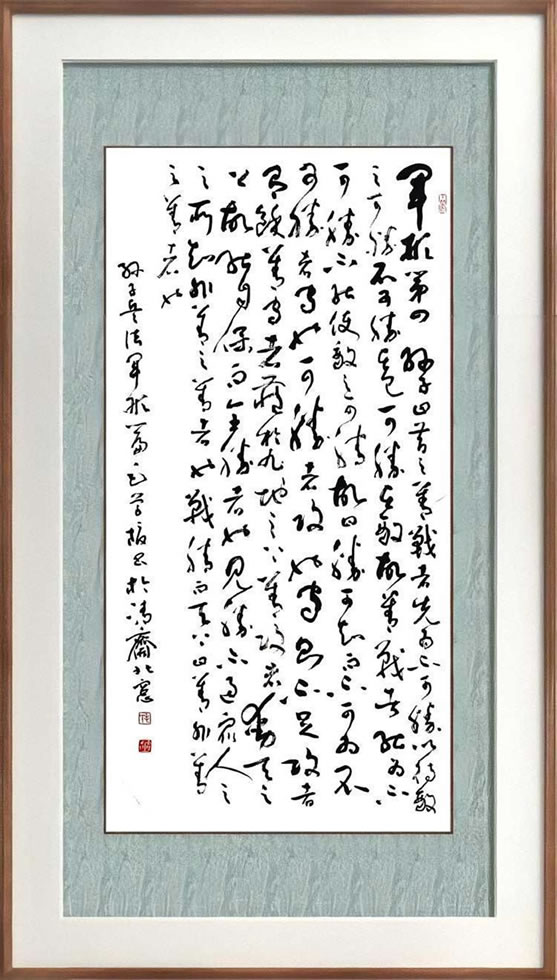 軍形第四 孫子曰昔之善戰者先為不可勝以待敵
之可勝不可勝在己可勝在敵故善戰者能為不
可勝不能使敵之可勝故曰勝可知而不可為不
可勝者守也可勝者攻也守則不足攻者
有餘善守者藏於九地之下善攻者動天之
上故能自保而全勝者也見勝不過眾人之
之所知非善之善者也戰勝而天下曰善非善
之善者也
孫子兵法軍形篇 書於 齋北窗